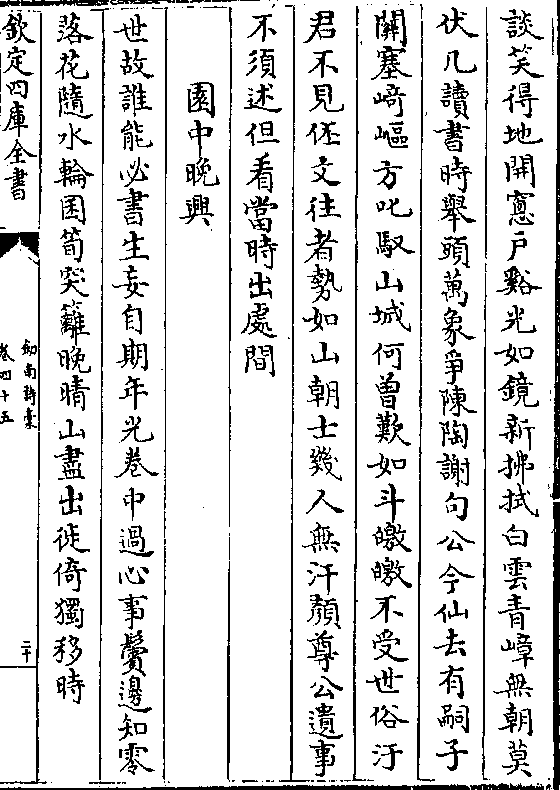 談笑得地開窻戶谿光如鏡新拂拭白雲青嶂無朝莫
伏几讀書時舉頭萬象爭陳陶謝句公今仙去有嗣子
關塞﨑嶇方叱馭山城何曽歎如斗皦皦不受世俗汙
君不見伾文往者勢如山朝士幾人無汗顔尊公遺事
不須述但看當時出處間
園中晚興
世故誰能必書生妄自期年光巻中過心事鬢邊知零
落花隨水輪囷筍突籬晚晴山盡出徙倚獨移時
欽定四庫全書
劒南詩藁
卷四十五
二十